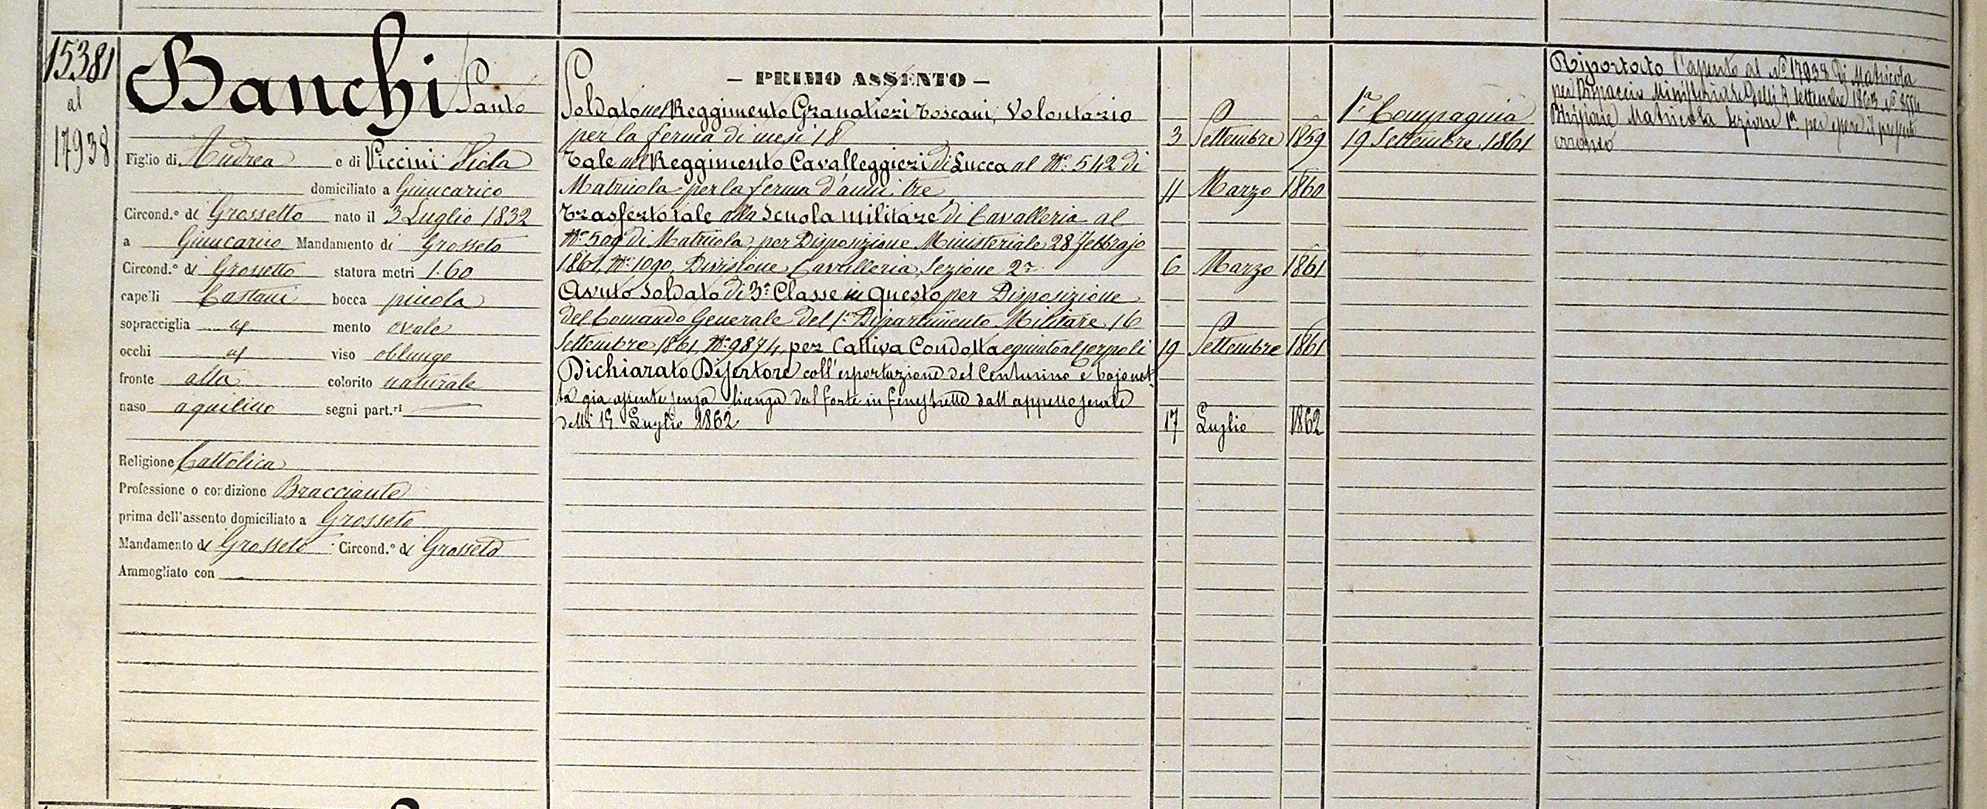 15381
al
17938
Banchi Santo
Figlio di Andrea e di Piccini Viola
domiciliato a Giuncarico
Circond.º di Grossetto nato il 3 Luglio 1832
a Giuncarico Mandamento di Grosseto
Circond.º di Grossetto statura metri 1.60
capelli Castani bocca piccola
sopracciglia id mento ovale
occhi id viso oblungo
fronte alta colorito naturale
naso aquilino segni part.ri
Religione Cattolica
Professione o condizione Bracciante
prima dell'assento domiciliato a Grosseto
Mandamento di Grosseto Circond.º di Grosseto
Ammogliato con
— PRIMO ASSENTO —
Soldato nel Reggimento Granatieri Toscani, Volontario
per la ferma di mesi 18 3 Settembre 1859
Tale nel Reggimento Cavalleggieri di Lucca al Nº 542 di
Matricola per la ferma d'anni tre 11 Marzo 1860
Trasferto tale alla Scuola militare di Cavalleria al
Nº 509 di Matricola, per Disposizione Ministeriale 28 Febbrajo
1861, Nº 1090, Divisione Cavalleria, Sezione 2ª 6 Marzo 1861
Avuto Soldato di 3ª Classe in questo per Disposizione
del Comando Generale del 1º Dipartimento Militare 16
Settembre 1861, Nº 9874, per Cattiva Condotta e giunto al corpo li 19 Settembre 1861
Dichiarato Disertore coll'esportazione del Centurino e bajonet
ta già assente senza licenza dal forte in Fenestrelle dall'appello serale
delli 15 Luglio 1862 17 Luglio 1862
1ª Compagnia
19 Settembre 1861
Riportato l'assento al Nº 17938 di Matricola
per Dispaccio Ministeriale delli 7 Settembre 1863 Nº
Divisione Matricola Sezione 1ª per essere il presente
erroneo